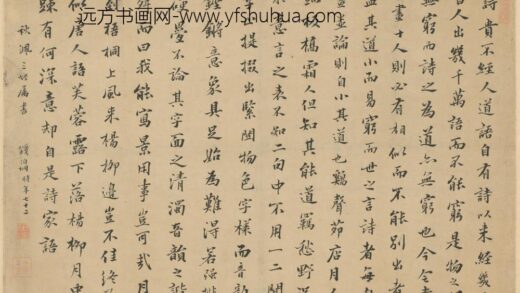 远方书画网- www.yfshuhua.com
詩貴不經人道語自有詩以來經幾
人出幾千萬語而不能窮是物之
無窮而詩之為道亦無窮也今令
畫士人則必有相似而不別出者
其道小而易窮而世之言詩者每
並論則自小其道也鷄聲茅店月人
橋霜人但知其能道羈愁野
意言之表不知二句中不用一二閒
提掇出緊關物色字樣而音
鏗鏘意象具足始為難得若强排
硬疊不論其字面之清濁音韻之諧
而曰我能寫景用事豈可哉月
到梧桐上風來楊柳邊豈不佳終
唐人語芙蓉露下落楊柳月中
踈有何深意却自是詩家語
秋佩 属書
錢伯坰時年七十二